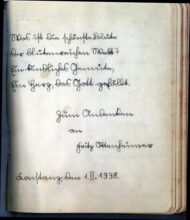 Was ist die schönste Blüte
der blütenreichen Welt?
Ein kindliches Gemüte,
Ein Herz, das Gott gefällt.
Zum Andenken
an
Fritz Ottenheimer
Konstanz, den 1. II. 1938.